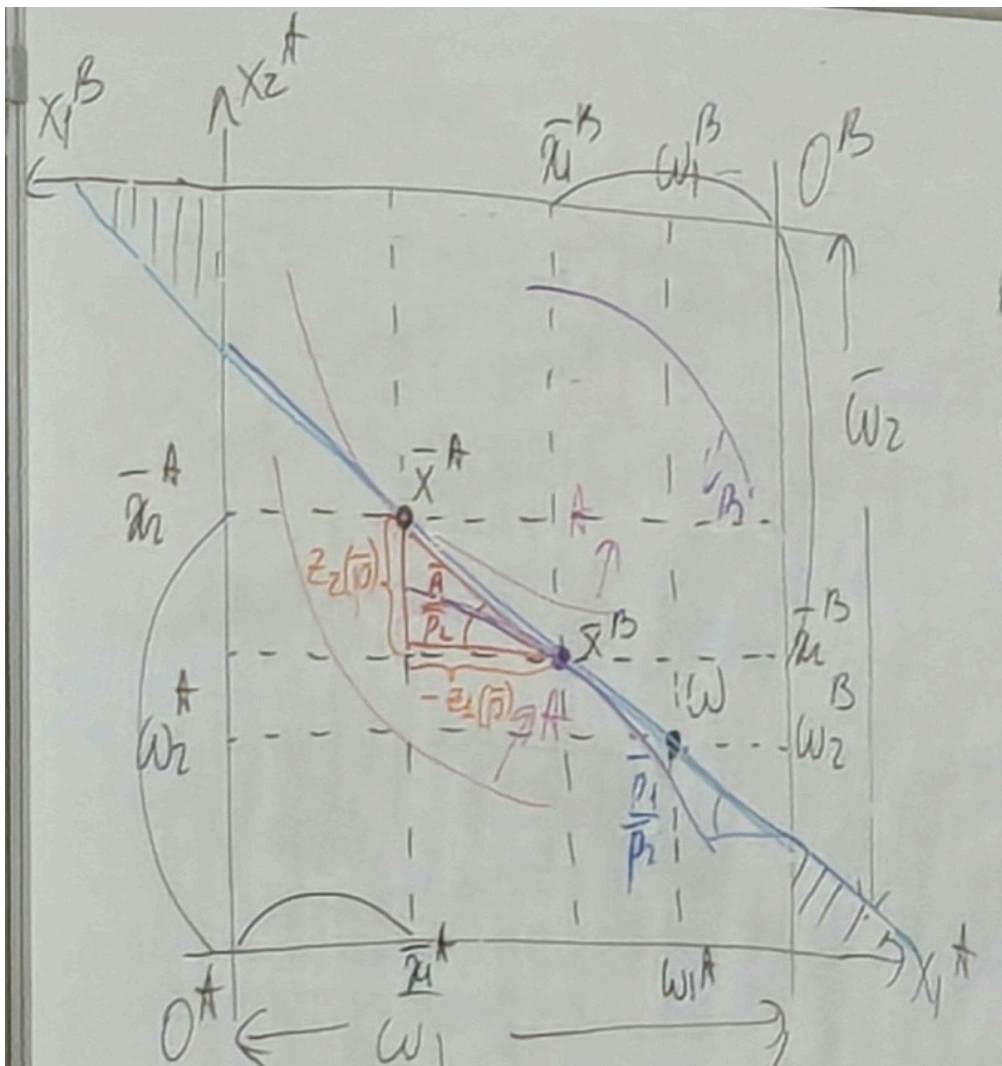 x₁ᴮ
x₂ᴬ
x̄₁ᴮ
ω₁ᴮ
Oᴮ
ω̄₂
x̄₂ᴬ
x̄ᴬ
A
B
z₂(p̄)
p̄₂
x̄ᴮ
-z₁(p̄)
A
ω
ω₂ᴬ
ω₂ᴮ
p̄₁
p̄₂
Oᴬ
x̄₁ᴬ
ω₁ᴬ
x₁ᴬ
ω₁